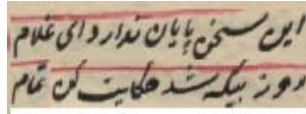 این سخن پایان ندارد ای غلام
روز بیگه شد حکایت کن تمام